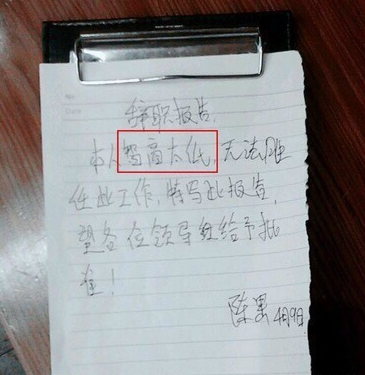 辞职报告
本人智商太低,无法胜
任此工作,特写此报告,
望各位领导给予批
准!
陈 4月9日